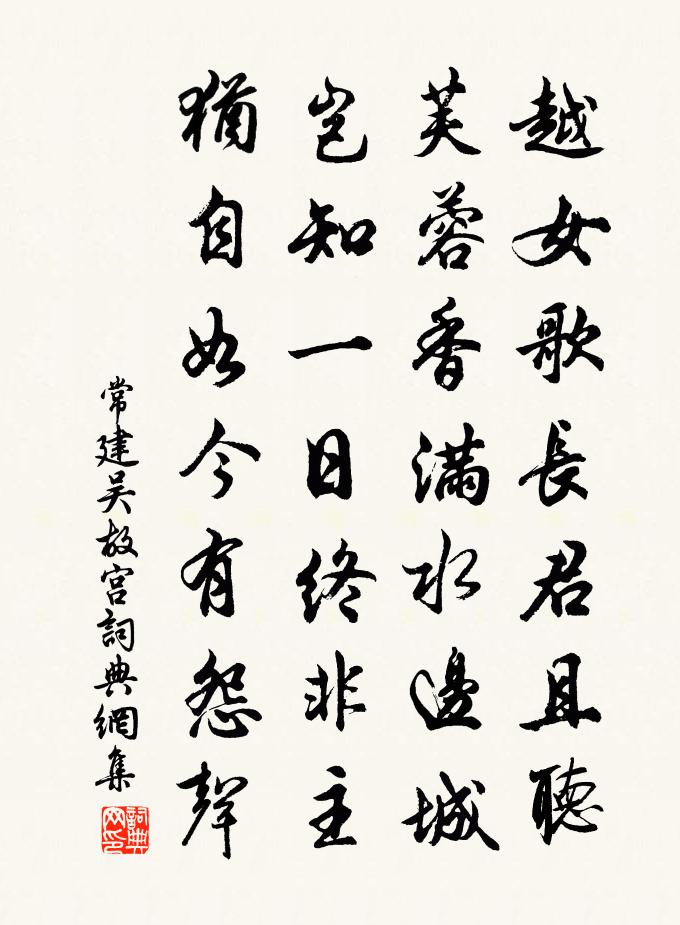 越女歌長君且聽
芙蓉香滿水邊城
豈知一日終非主
猶自如今有怨聲
常建吳故宮詞典網集
詞典
网印